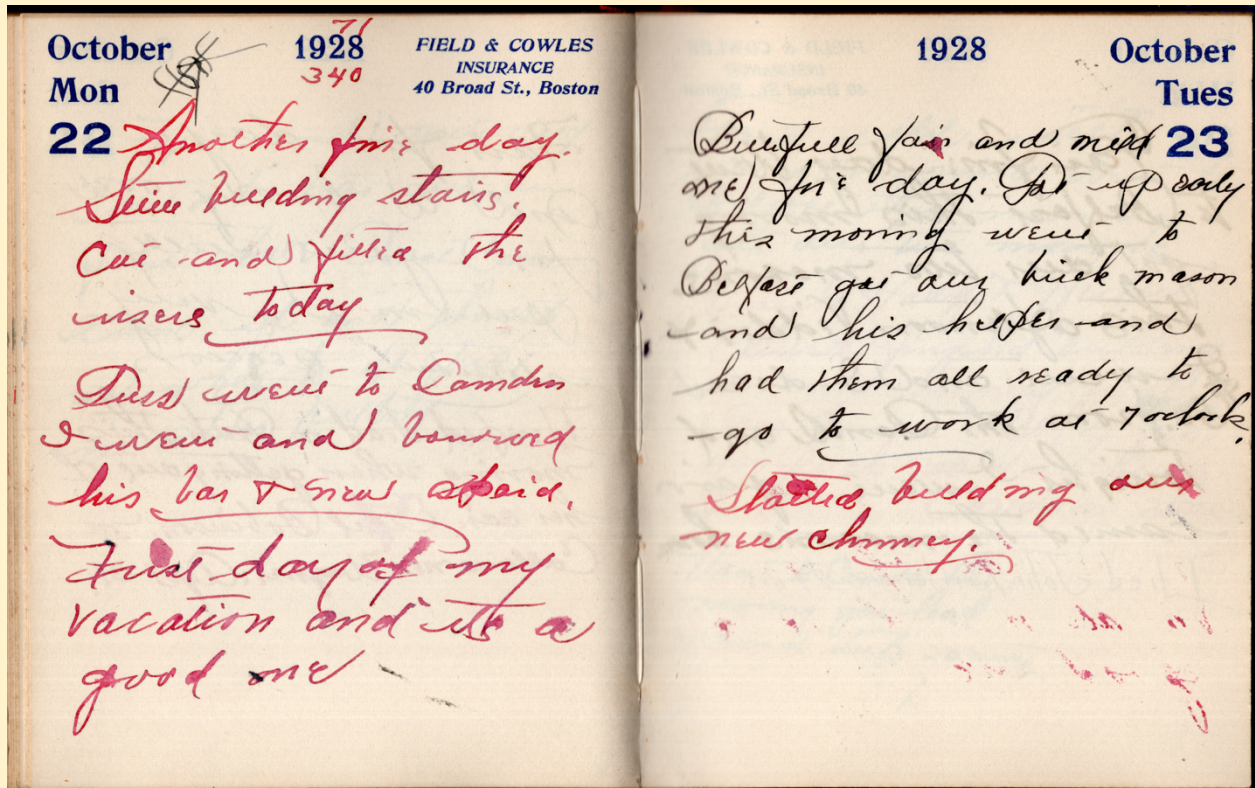 October
Mon
22
1928
71
340
FIELD & COWLES
INSURANCE
40 Broad St., Boston
Another fine day.
building stairs.
Cut and fitted the
risers today
Russ went to Camden
I went and borrowed
his bar &
First day of my
vacation and its a
good one
1928
October
Tues
23
fair and mild
one fine day. Got up early
this morning went to
Belfast got our brick mason
and his helper and
had them all ready to
go to work at 7 oclock.
Started building our
new chimney.